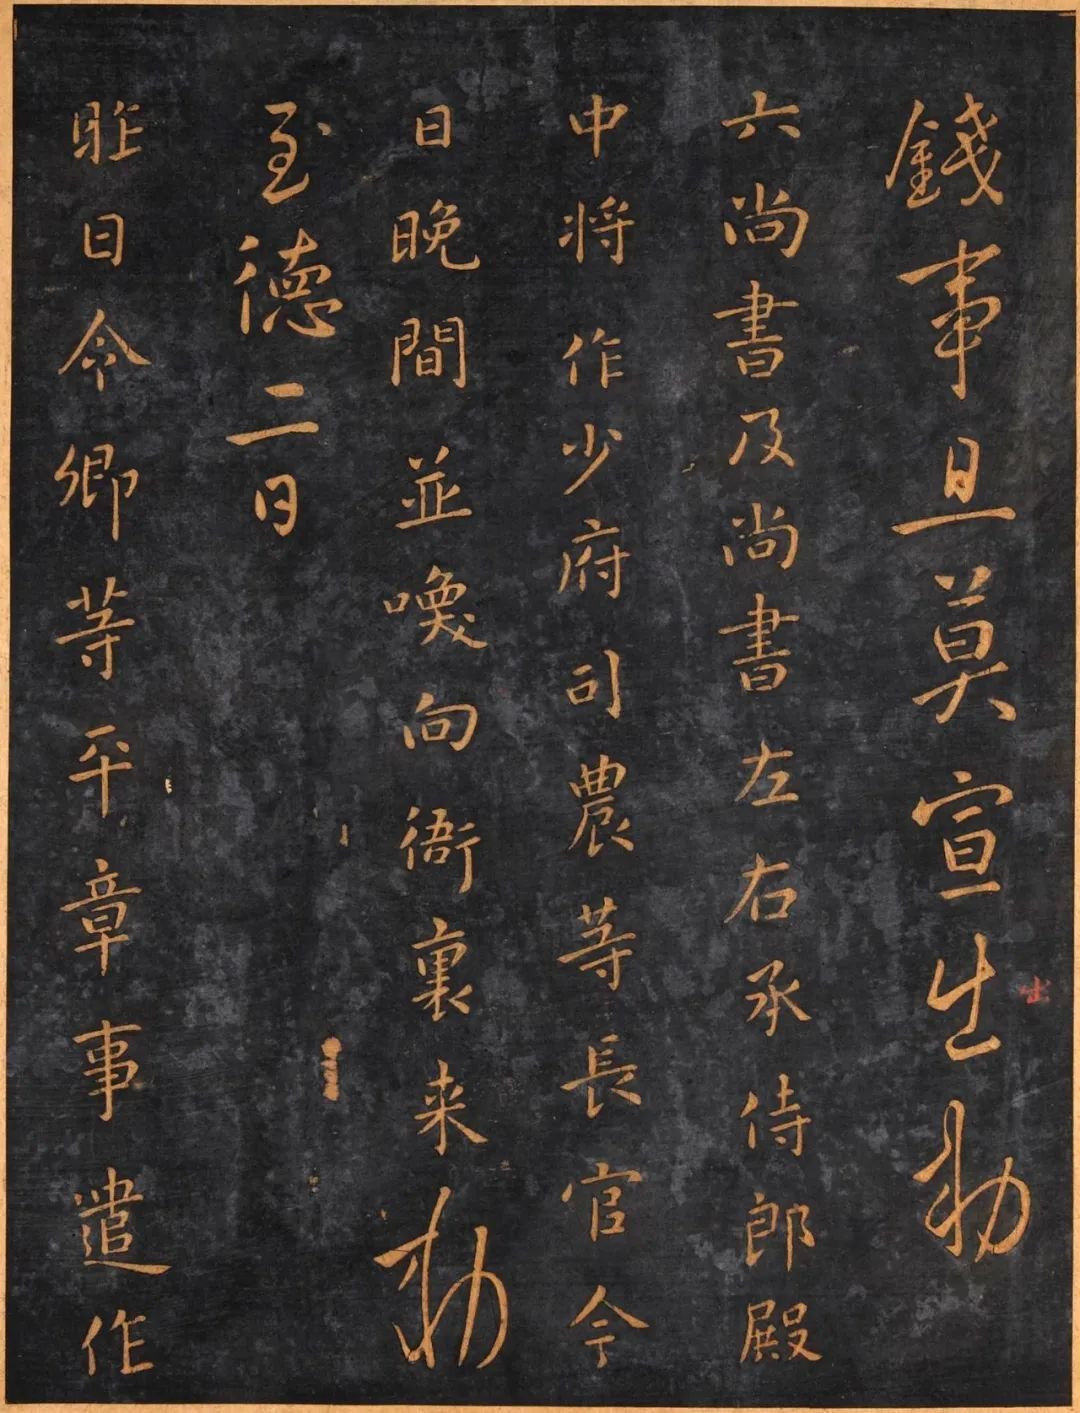 錢事旦莫宣生勅
六尚書及尚書左右承侍郎殿
中将作少府司農等長官今
日晚間並喚向衙裏来勅
至德二日
昨日令卿等平章事遣作